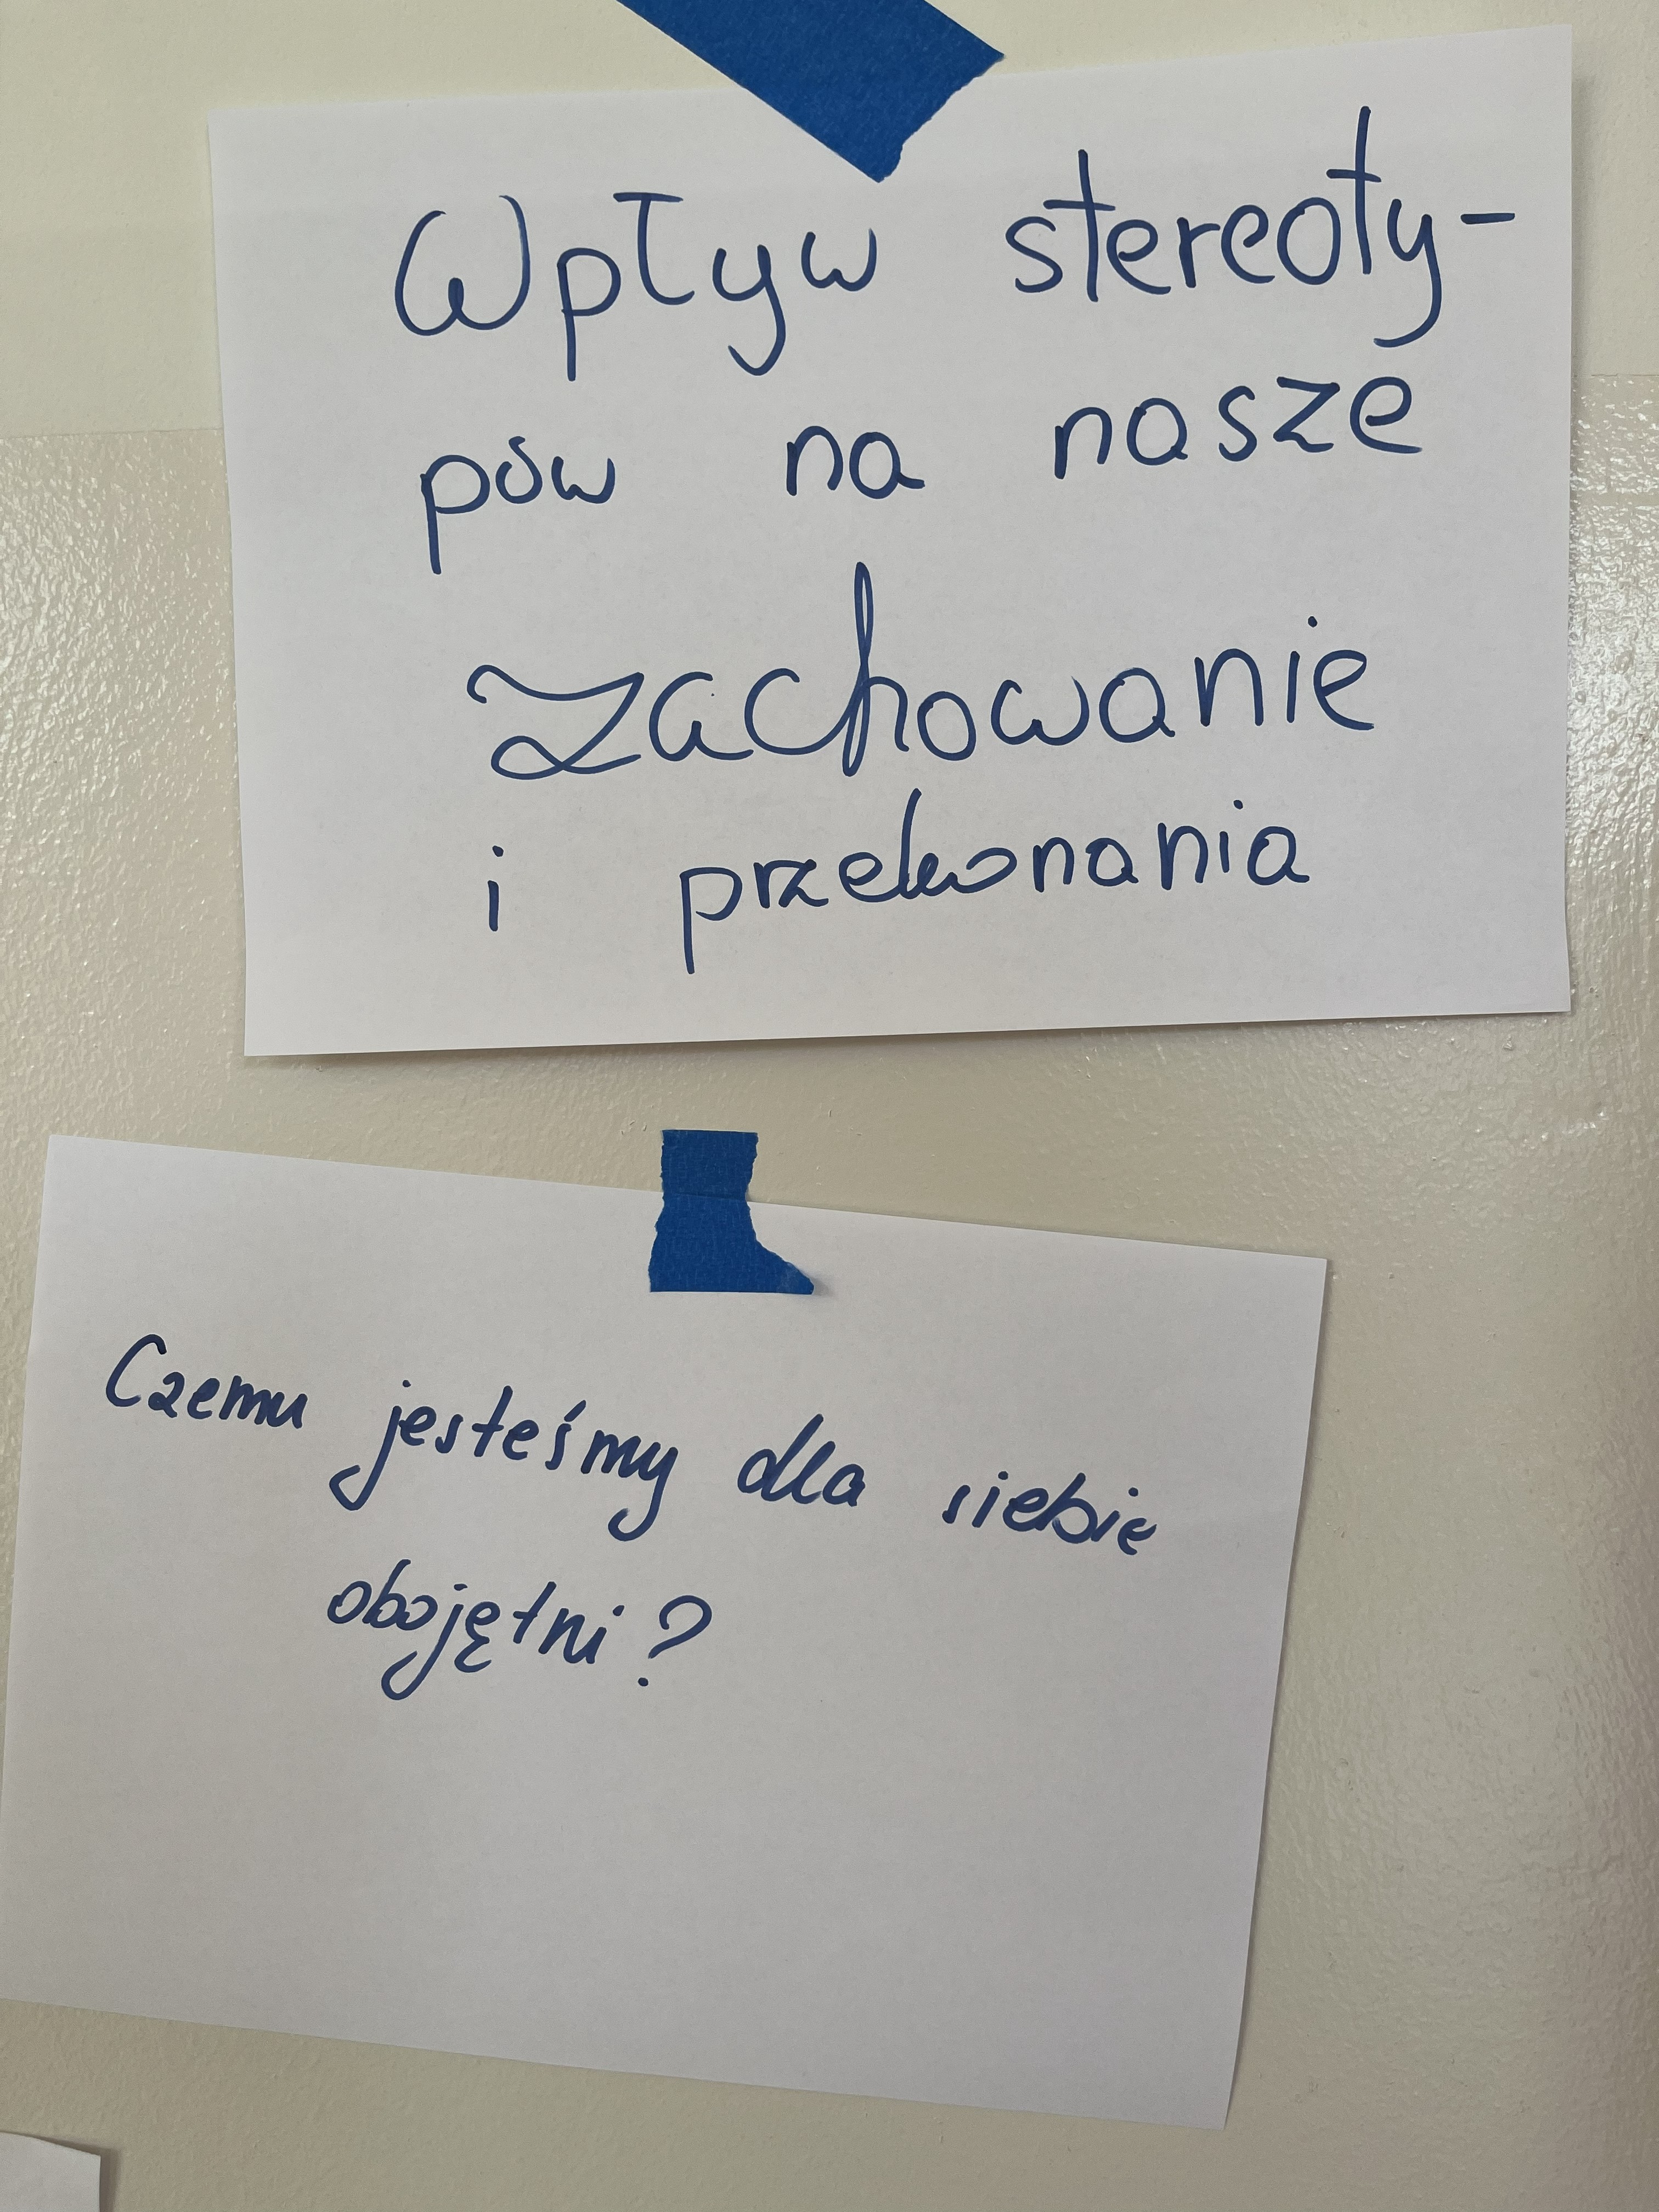 Wpływ stereoty-
pów na nasze
zachowanie
i przekonania
Czemu jesteśmy dla siebie
obojętni?